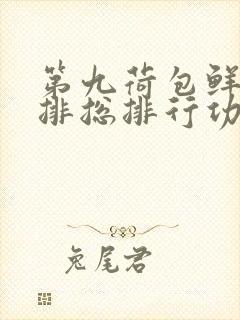 第九荷包鲜
排总排行功
兔尾君